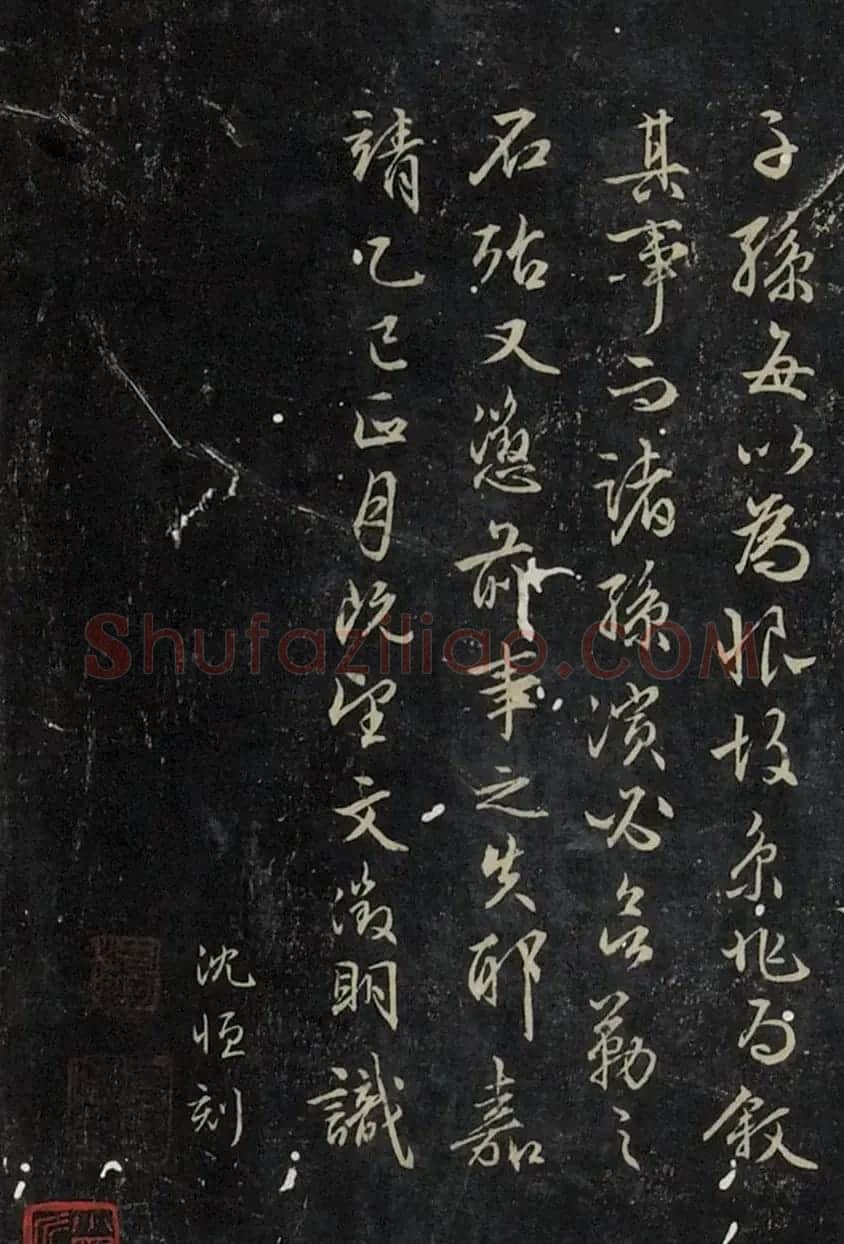 子孫每以為恨故余作此為敘
其事而諸孫濱必欲勒之
石殆又懲前事之失耶嘉
靖乙巳正月既望文徵明識
沈恒刻
Shufaziliao.COM